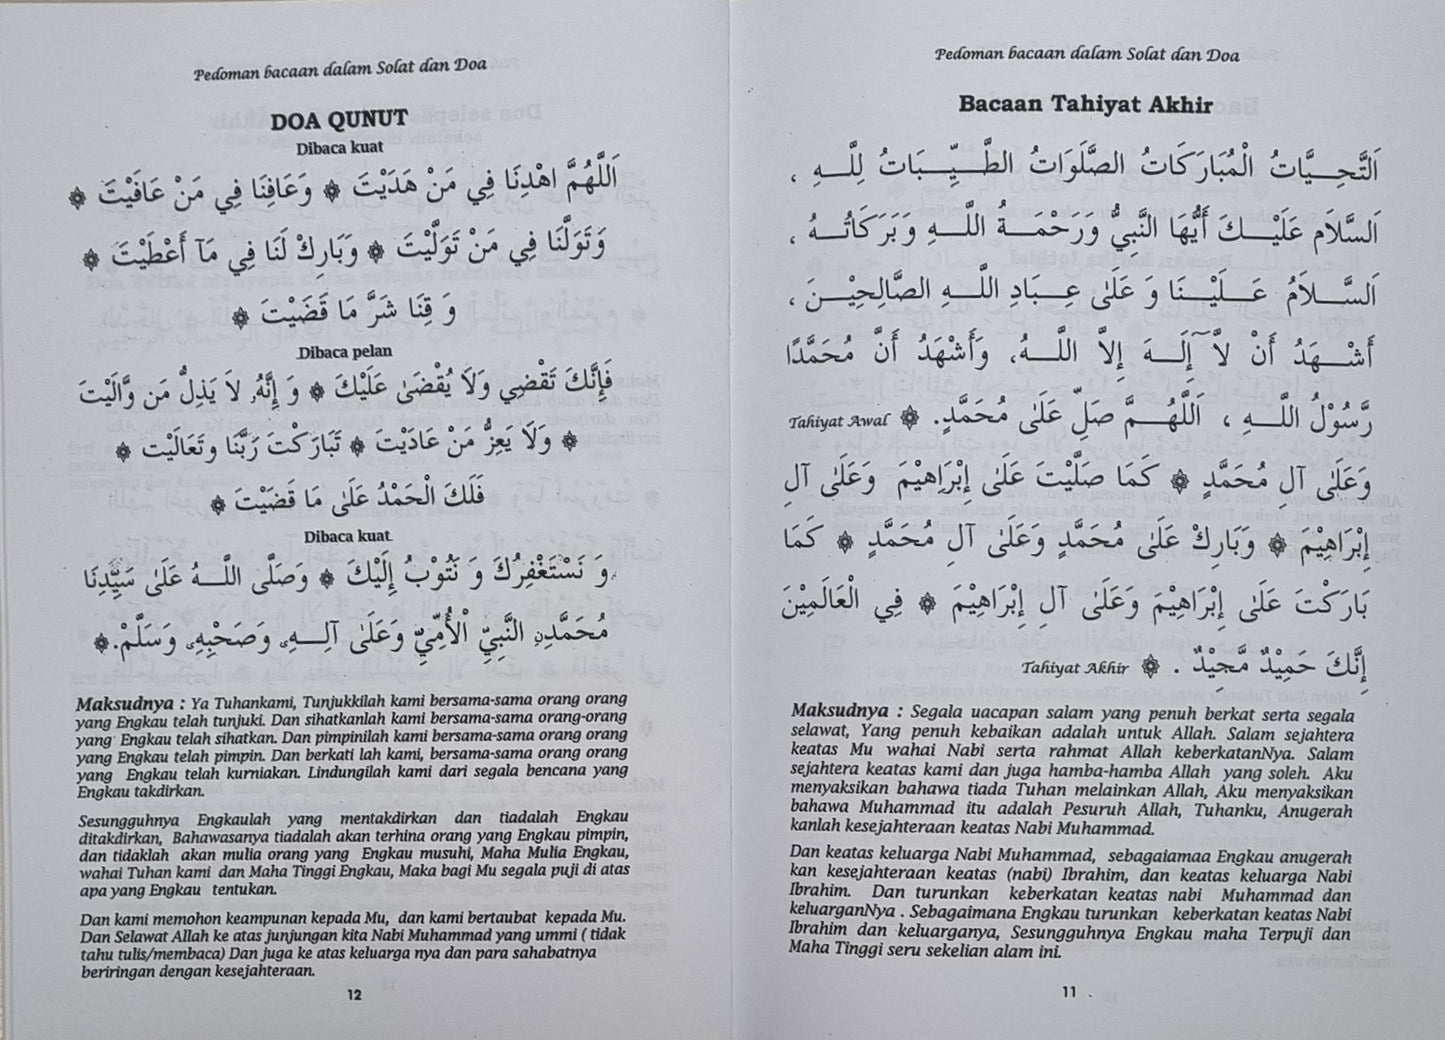 Pedoman bacaan dalam Solat dan Doa
Bacaan Tahiyat Akhir
اَلتَّحِيَّاتُ الْمُبَارَكَاتُ الصَّلَوَاتُ الطَّيِّبَاتُ لِلَّهِ ،
اَلسَّلاَم عَلَيْكَ أَيُّهَا النَّبِيُّ وَرَحْمَةُ اللَّهِ وَبَرَكَاتُهُ ،
اَلسَّلاَمُ عَلَيْنَا وَ عَلَى عِبَادِ اللَّهِ الصَّالِحِيْنَ ،
أَشْهَدُ أَنْ لآَّ إِلَهَ إِلاَّ اللَّهُ، وَأَشْهَدُ أَنَّ مُحَمَّدًا
رَّسُوْلُ اللَّهِ ، اَللَّهُمَّ صَلِّ عَلَى مُحَمَّدٍ. ۞ Tahiyat Awal
وَعَلَى آلِ مُحَمَّدٍ ۞ كَمَا صَلَّيْتَ عَلَى إِبْرَاهِيْمَ وَعَلَى آلِ
إِبْرَاهِيْمَ ۞ وَبَارِكْ عَلَى مُحَمَّدٍ وَعَلَى آلِ مُحَمَّدٍ ۞ كَمَا
بَارَكْتَ عَلَى إِبْرَاهِيْمَ وَعَلَى آلِ إِبْرَاهِيْمَ ۞ فِي الْعَالَمِيْنَ
إِنَّكَ حَمِيْدٌ مَّجِيْدٌ . ۞ Tahiyat Akhir
Maksudnya : Segala uacapan salam yang penuh berkat serta segala
selawat, Yang penuh kebaikan adalah untuk Allah. Salam sejahtera
keatas Mu wahai Nabi serta rahmat Allah keberkatanNya. Salam
sejahtera keatas kami dan juga hamba-hamba Allah yang soleh. Aku
menyaksikan bahawa tiada Tuhan melainkan Allah, Aku menyaksikan
bahawa Muhammad itu adalah Pesuruh Allah, Tuhanku, Anugerah
kanlah kesejahteraan keatas Nabi Muhammad.
Dan keatas keluarga Nabi Muhammad, sebagaiamaa Engkau anugerah
kan kesejahteraan keatas (nabi) Ibrahim, dan keatas keluarga Nabi
Ibrahim. Dan turunkan keberkatan keatas nabi Muhammad dan
keluarganNya . Sebagaimana Engkau turunkan keberkatan keatas Nabi
Ibrahim dan keluarganya, Sesungguhnya Engkau maha Terpuji dan
Maha Tinggi seru sekelian alam ini.
11
Pedoman bacaan dalam Solat dan Doa
DOA QUNUT
Dibaca kuat
اَللَّهُمَّ اهْدِنَا فِي مَنْ هَدَيْتَ ۞ وَعَافِنَا فِي مَنْ عَافَيْتَ ۞
وَتَوَلَّنَا فِي مَنْ تَوَلَّيْتَ ۞ وَبَارِكْ لَنَا فِي مَآ أَعْطَيْتَ ۞
وَ قِنَا شَرَّ مَا قَضَيْتَ ۞
Dibaca pelan
فَإِنَّكَ تَقْضِي وَلاَ يُقْضَىٰ عَلَيْكَ ۞ وَ إِنَّهُ لاَ يَذِلُّ مَن وَّالَيْتَ
۞ وَلاَ يَعِزُّ مَنْ عَادَيْتَ ۞ تَبَارَكْتَ رَبَّنَا وتَعَالَيْت ۞
فَلَكَ الْحَمْدُ عَلَى مَا قَضَيْتَ ۞
Dibaca kuat
وَ نَسْتَغْفِرُكَ وَ نَتُوْبُ إِلَيْكَ ۞ وَصَلَّى اللَّهُ عَلَى سَيِّدِنَا
مُحَمَّدِنِ النَّبِيِّ الْأُمِّيِّ وَعَلَى آلِهِ وَصَحْبِهِ وَسَلَّمْ. ۞
Maksudnya : Ya Tuhankami, Tunjukkilah kami bersama-sama orang orang
yang Engkau telah tunjuki. Dan sihatkanlah kami bersama-sama orang-orang
yang Engkau telah sihatkan. Dan pimpinilah kami bersama-sama orang orang
yang Engkau telah pimpin. Dan berkati lah kami, bersama-sama orang orang
yang Engkau telah kurniakan. Lindungilah kami dari segala bencana yang
Engkau takdirkan.
Sesungguhnya Engkaulah yang mentakdirkan dan tiadalah Engkau
ditakdirkan, Bahawasanya tiadalah akan terhina orang yang Engkau pimpin,
dan tidaklah akan mulia orang yang Engkau musuhi, Maha Mulia Engkau,
wahai Tuhan kami dan Maha Tinggi Engkau, Maka bagi Mu segala puji di atas
apa yang Engkau tentukan.
Dan kami memohon keampunan kepada Mu, dan kami bertaubat kepada Mu.
Dan Selawat Allah ke atas junjungan kita Nabi Muhammad yang ummi ( tidak
tahu tulis/membaca) Dan juga ke atas keluarga nya dan para sahabatnya
beriringan dengan kesejahteraan.
12